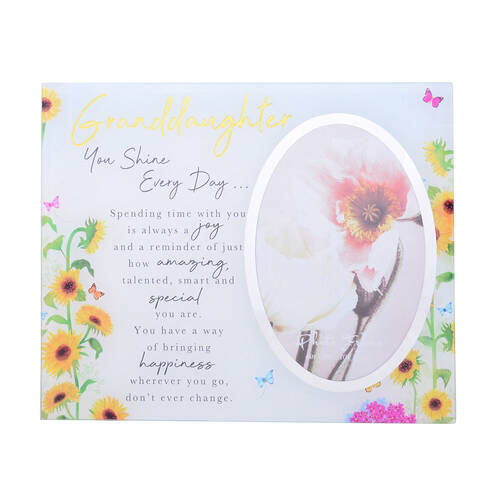 Granddaughter
You Shine
Every Day ...
Spending time with you
is always a joy
and a reminder of just
how amazing,
talented, smart and
special
you are.
You have a way
of bringing
happiness
wherever you go,
don't ever change.
Photo Frame